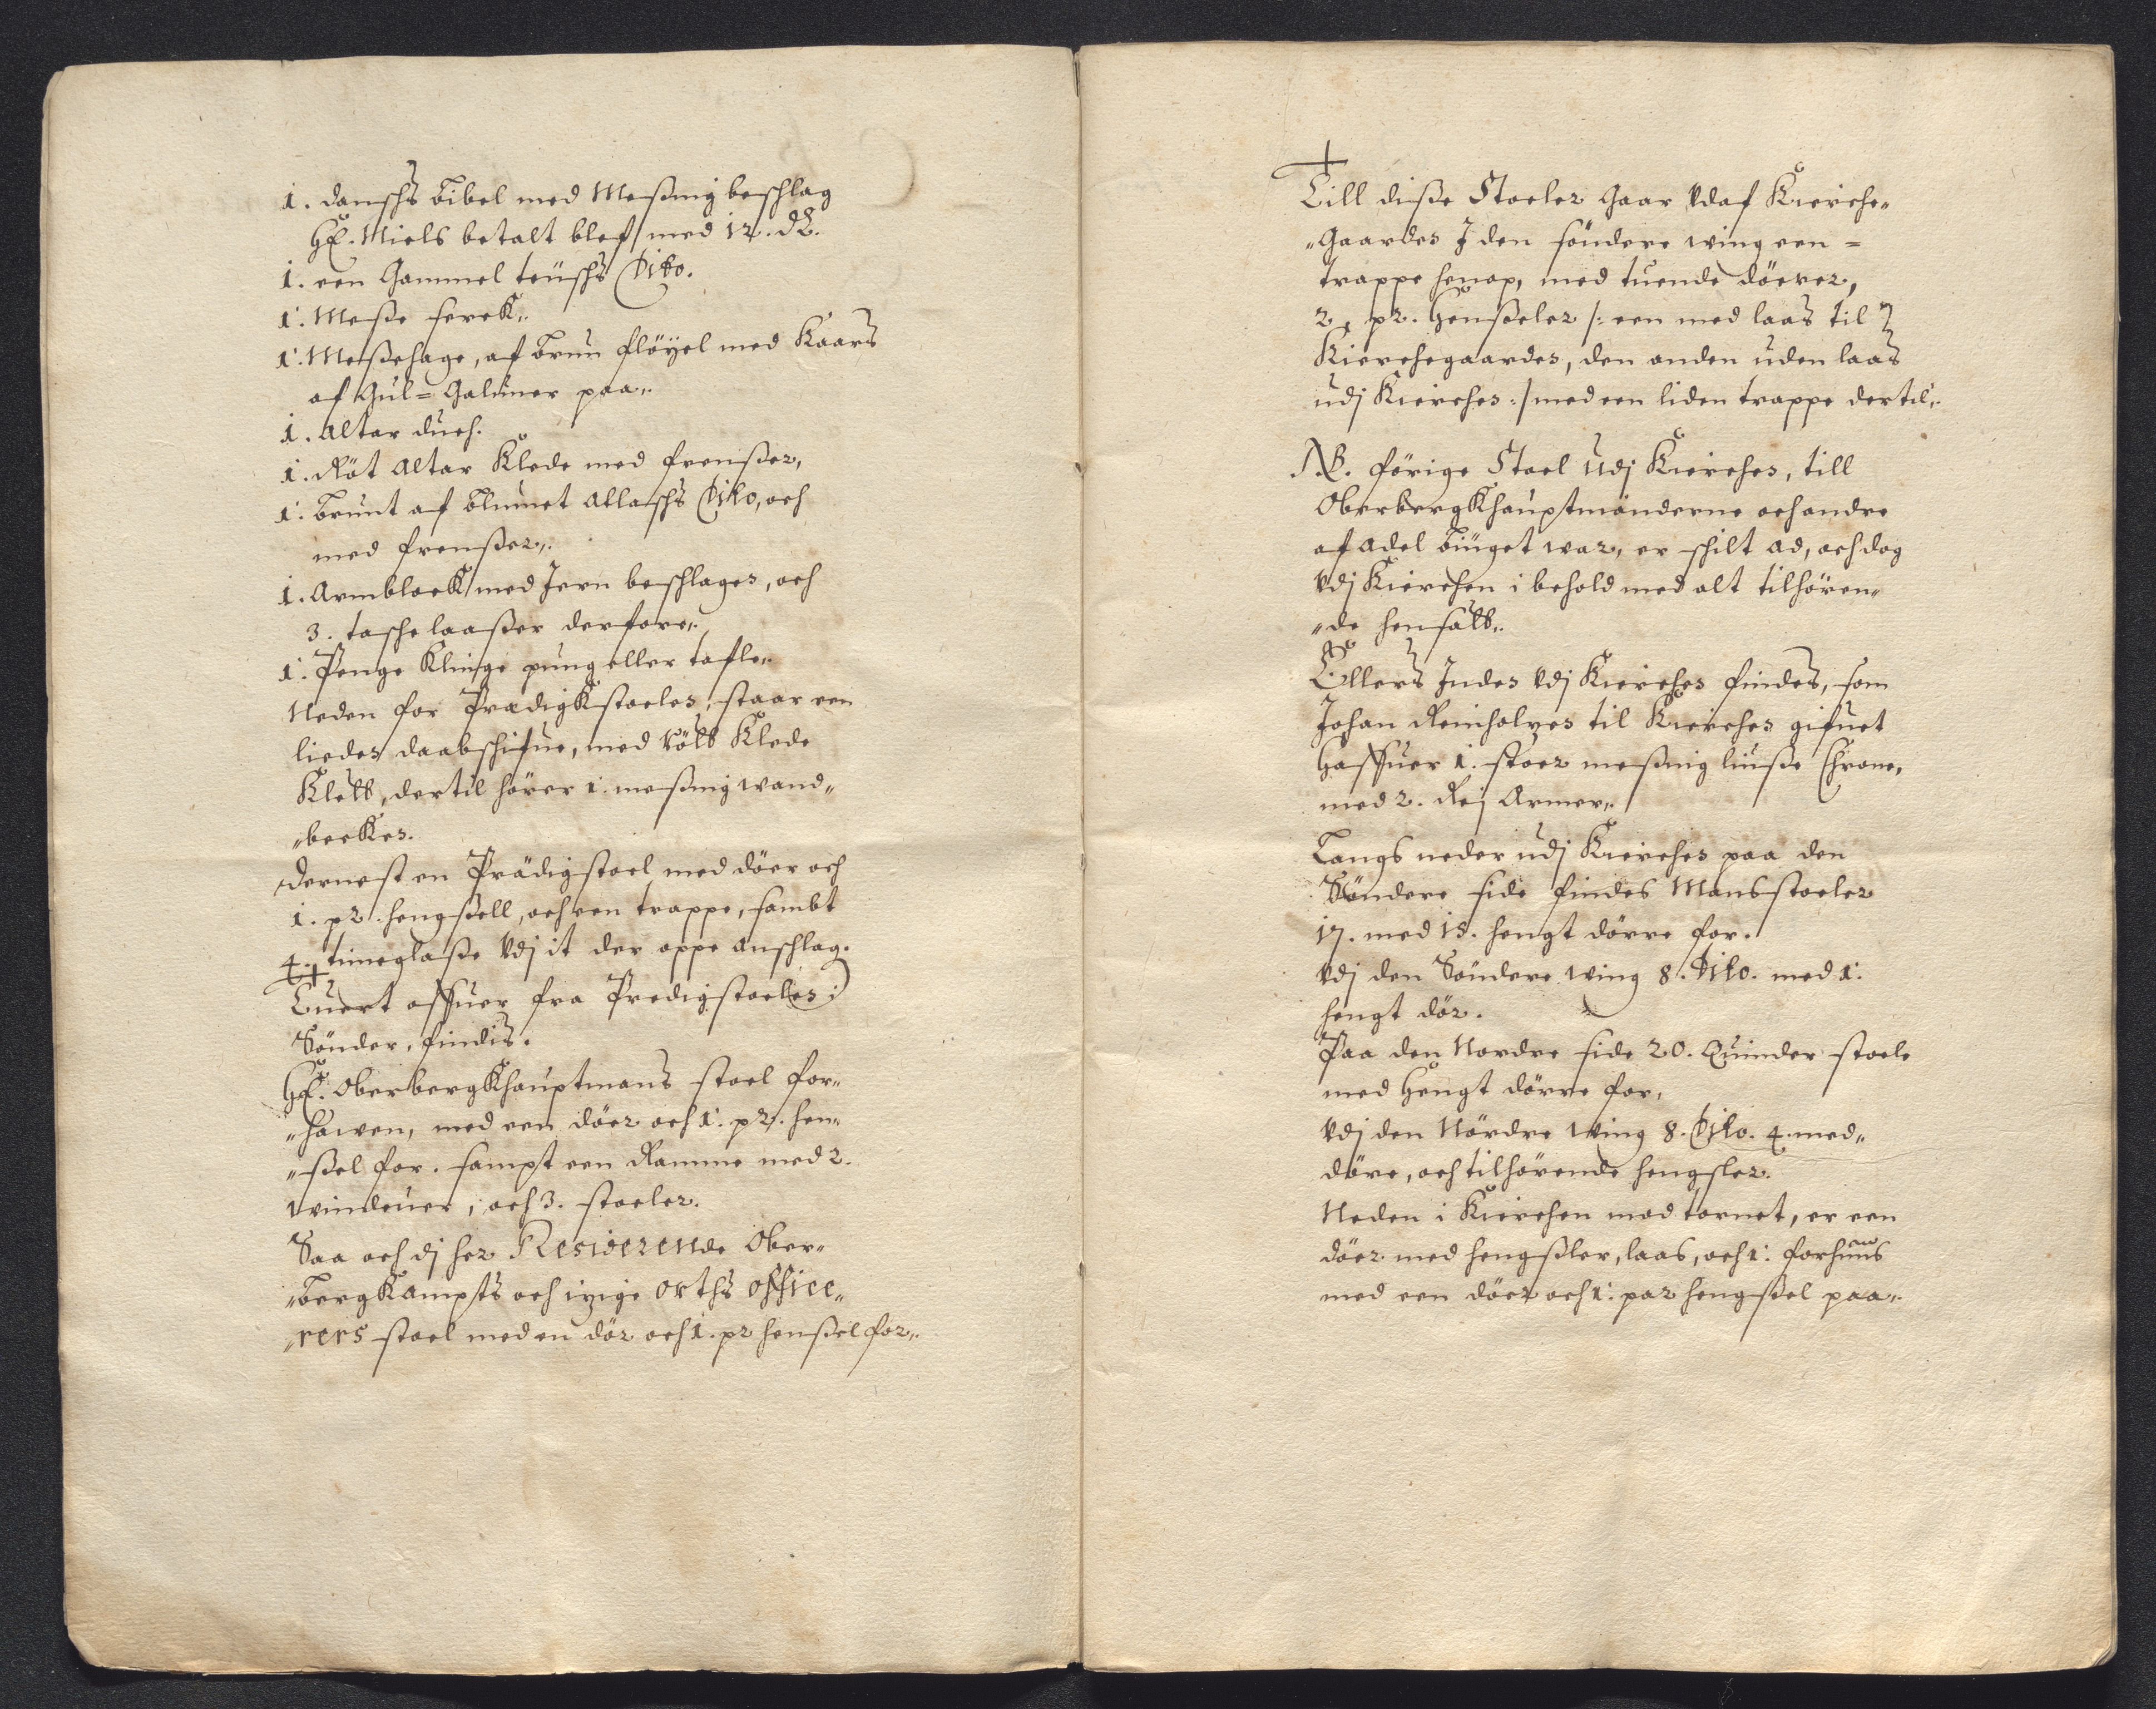 1. Danschs Bibel med Messing beschlag
HE. Niels betalt blef/ med 12. dl.
1. een Gammel teüschs Dito.
1. Messe serck,.
1. Messehage, af brun flöyel med Kaars
af Gul= Galuner paa,.
1. Altar duch.
1. Röt Altar Klede med frensser,
1. Brunt af blumet Atlaschs Dito, och
med frensser,.
1. Armblock med Jern beschlagen, och
3. tasche laasser derfore,.
1. Penge Klinge pung eller tafle,.
Neden for Prædigkstoelen, staar een
lieden daabschifue, med rött Klede
Klett, dertil hörer 1. messing wand"
"becken.
Dernest en Prädigstoel med döer och
1. pr. hengssell, och een trappe, sambt
4. timeglasse Vdj it der oppe anschlag.
Tuert offuer fra Predigstoelen i
Sönder, findis.
HE. Oberbergkhauptmans stoel for"
"hawen, med een döer och 1. pr. hen"
"ssel for. sampt een Ramme med 2.
winduer, och 3. stoeler.
Saa och dj her Residerende Ober"
"bergkampts och izige orths office"
"rers stoel med en dör och 1. pr henssel for,.
Till disse Stoeler Gaar Vdaf Kierche"
"Gaarden J den söndere wing een =
trappe henop, med tuende döerer,
2, pr. Hensseler /: een med laas til
Kierchegaarden, den anden uden laas
udj Kierchen :/ med een liden trappe dertil,.
NB. förige Stoel Udj Kierchen, till
Oberbergkhauptmänderne och andre
af Adel büiget war, er schilt ad, och dog
Vdj Kierchen i behold med alt tilhören"
"de hensatt,.
Ellers Inden Vdj Kierchen findes, som
Johan Reinholzen til Kierchen gifuet
Haffuer 1. stoer messing liusse Chrone,
med 2. Rej Armer,.
Langs neder udj Kierchen paa den
Söndere side findes Mansstoeler
17. med 15. hengt dörre for.
Vdj den Söndere wing 8. Dito. med 1.
hengt dör.
Paa den Nordre side 20. Quinder stoele
med Hengt dörre for,
Vdj den Nördre wing 8. Dito. 4. med"
döre, och tilhörende hengsler.
Neden i Kierchen mod tornet, er een
döer med hengssler, laas, och 1. forhuus
med een döer och 1. par hengssel paa,.